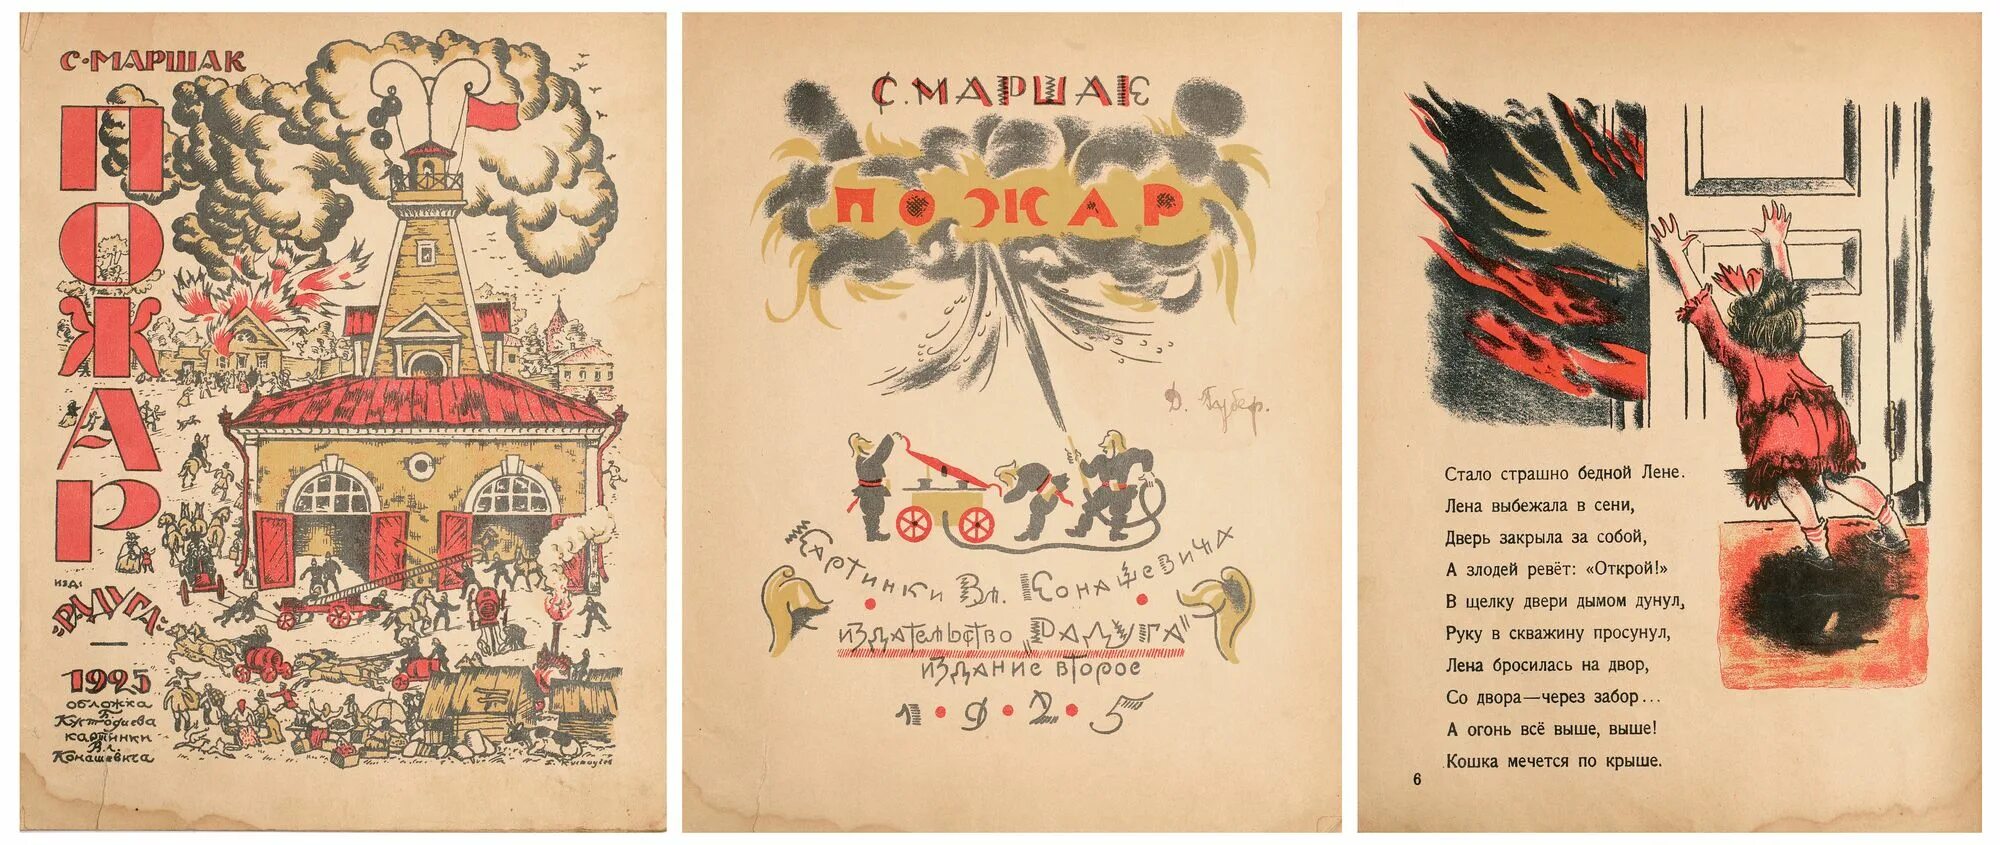 С. МАРШАК
ПОЖАР
ИЗД.
"РАДУГА"
1925
обложка
Б.
Кустодиева
картинки
Вл.
Конашевича
Б. Кустодиев
С. МАРШАК
ПОЖАР
Д. Губер.
Картинки Вл. Конашевича
издательство „РАДУГА"
издание второе
1 • 9 • 2 • 5
Стало страшно бедной Лене.
Лена выбежала в сени,
Дверь закрыла за собой,
А злодей ревёт: «Открой!»
В щелку двери дымом дунул,
Руку в скважину просунул,
Лена бросилась на двор,
Со двора—через забор...
А огонь всё выше, выше!
Кошка мечется по крыше.
6